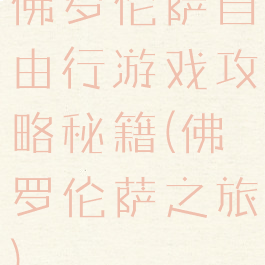 佛罗伦萨自
由行游戏攻
略秘籍(佛
罗伦萨之旅
)